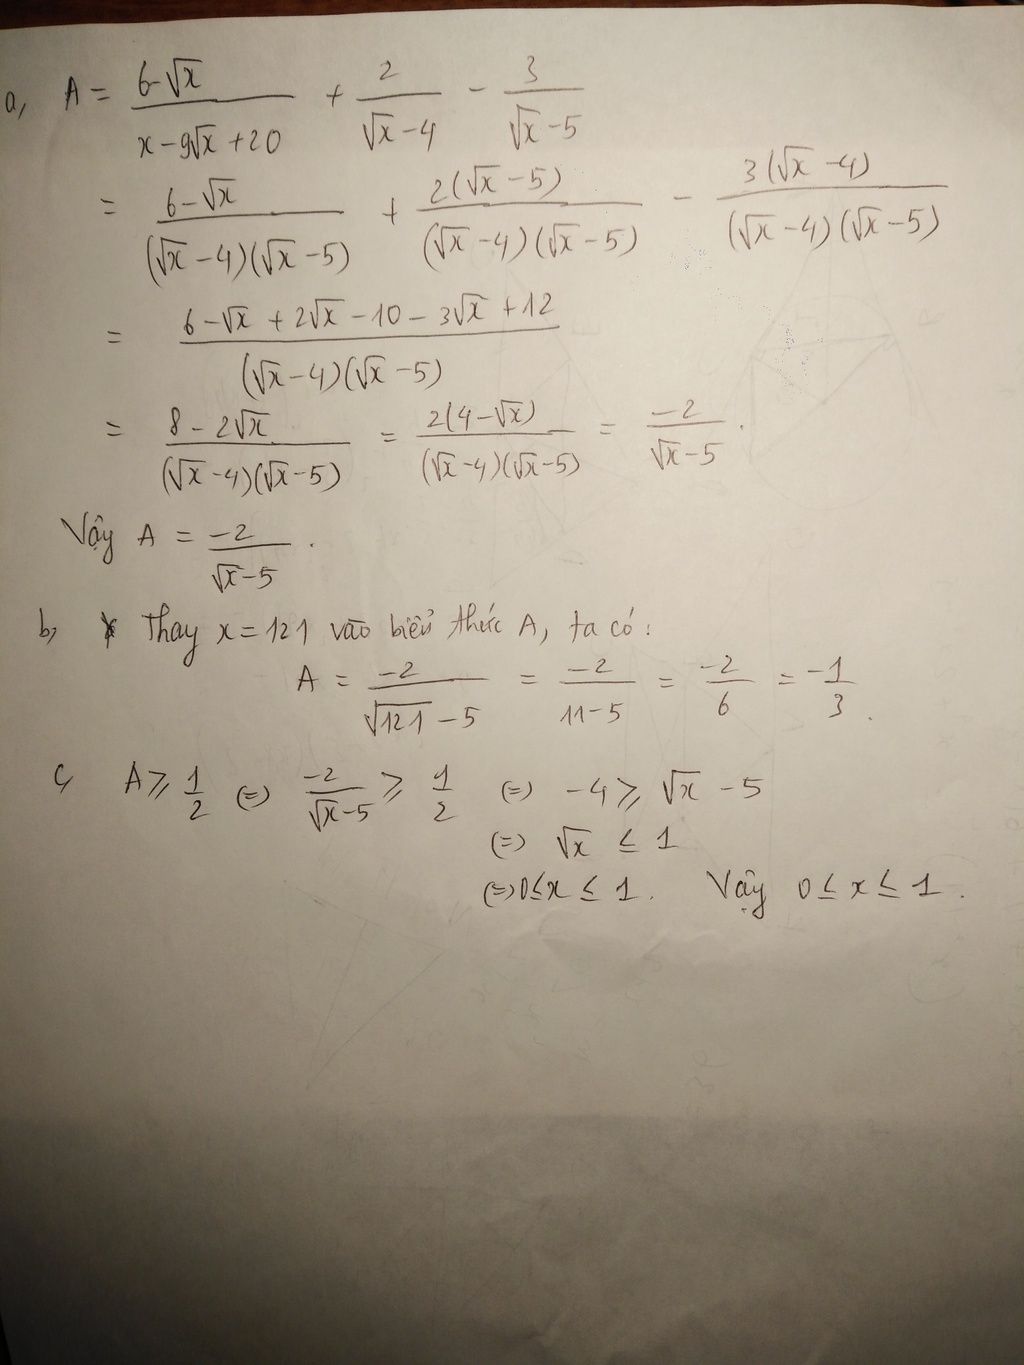 a, A = (6-√x)/(x-9√x+20) + 2/(√x-4) - 3/(√x-5)
= (6-√x)/((√x-4)(√x-5)) + 2(√x-5)/((√x-4)(√x-5)) - 3(√x-4)/((√x-4)(√x-5))
= (6-√x+2√x-10-3√x+12)/((√x-4)(√x-5))
= (8-2√x)/((√x-4)(√x-5)) = 2(4-√x)/((√x-4)(√x-5)) = -2/(√x-5).
Vậy A = -2/(√x-5).
b, Thay x=121 vào biểu thức A, ta có:
A = -2/(√121-5) = -2/(11-5) = -2/6 = -1/3.
c, A ≥ 1/2 (=) -2/(√x-5) ≥ 1/2 (=) -4 ≥ √x - 5
(=) √x ≤ 1
(=) 0≤x ≤ 1. Vậy 0 ≤ x ≤ 1.